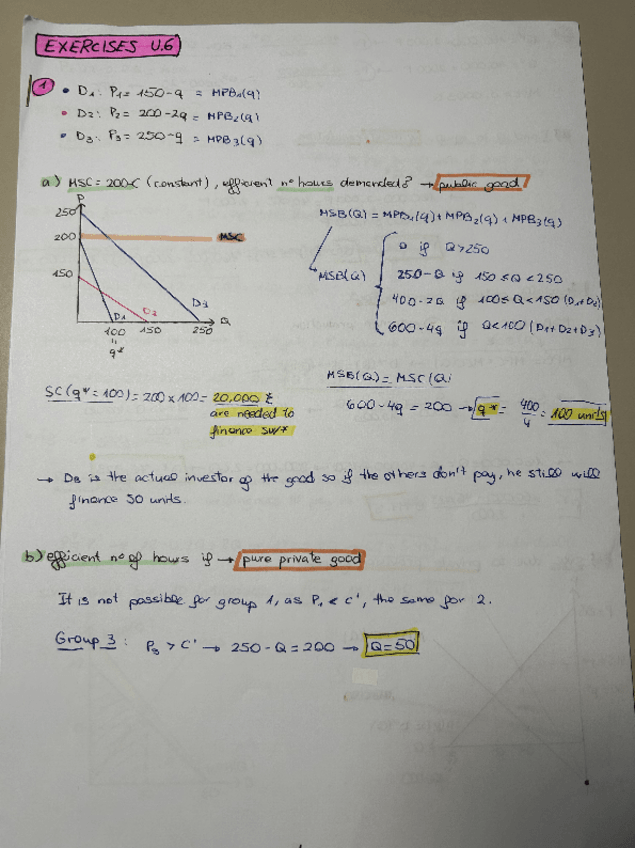 EXERCISES U.6
1
• D1: P1 = 150-q = MPB1(q)
• D2: P2 = 200-2q = MPB2(q)
• D3: P3 = 250-q = MPB3(q)
a) MSC = 200€ (constant), efficient nº hours demanded? → public good
P
250
200
150
MSC
D1
D2
D3
100
150
250
Q
"
q*
MSB(Q) = MPB1(q) + MPB2(q) + MPB3(q)
MSB(Q)
0 if Q>250
250-Q if 150 ≤ Q < 250
400-2Q if 100 ≤ Q < 150 (D1+D2)
600-4q if Q<100 (D1+D2+D3)
MSB(Q) = MSC(Q)
600-4q = 200 → q* = 400/4 = 100 units
SC(q*=100) = 200 x 100 = 20,000 €
are needed to
finance sw*
→ D3 is the actual investor of the good so if the others don't pay, he still will
finance 50 units.
b) efficient nº of hours if → pure private good
It is not possible for group 1, as P1 < c', the same for 2.
Group 3: P3 > C' → 250-Q = 200 → Q=50